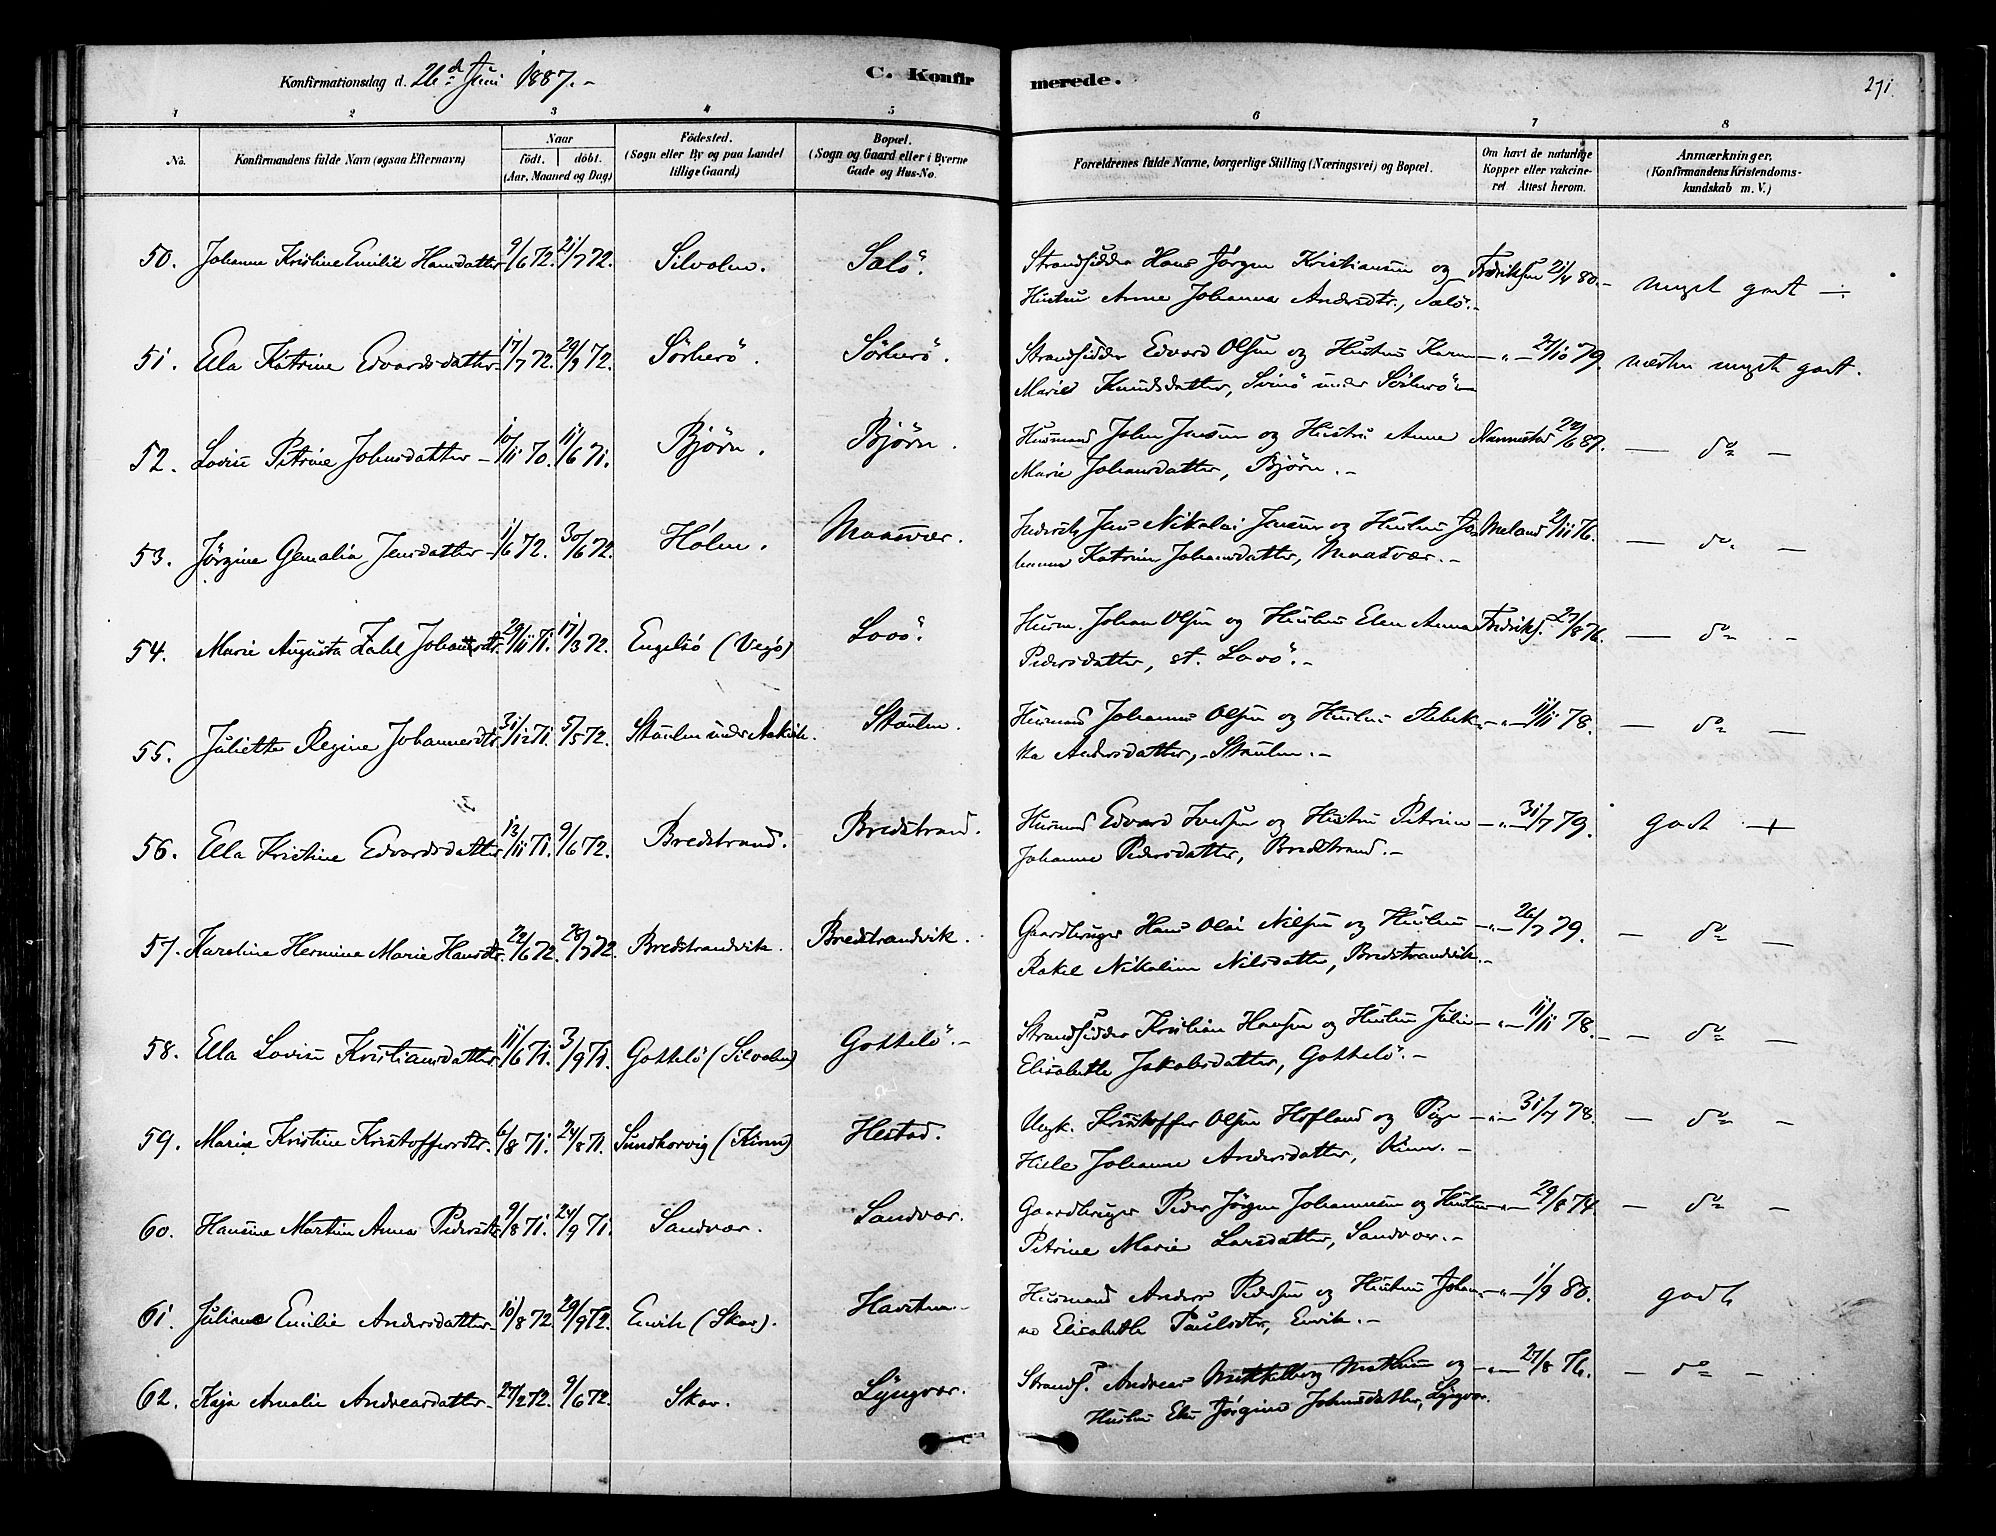 Konfirmationsdag d. 26d Juni 1887.-
C. Konfirmerede.
271.
1 2 3 4 5 6 7 8
No. Konfirmandens fulde Navn (ogsaa Efternavn) Naar födt. döbt. (Aar, Maaned og Dag) Födested. (Sogn eller By og paa Landet tillige Gaard) Bopæl. (Sogn og Gaard eller i Byerne Gade og Hus-No. Forældrenes fulde Navne, borgerlige Stilling (Næringsvei) og Bopæl. Om havt de naturlige Kopper eller vakcineret Attest herom. Anmærkninger. (Konfirmandens Kristendomskundskab m. V.)
50. Johanne Kristine Emilie Hansdatter 9/6 72. 21/7 72. Silvalen. Salö. Strandsidder Hans Jörgen Kristiansen og Fredriksen 21/4 80.- meget godt
Hustru Anne Johanna Andersdtr., Salö.-
51. Ela Katrine Edvardsdatter 17/7 72. 29/9 72. Sörherö. Sörherö. Strandsidder Edvard Olsen og Hustru Karen - " - 27/10 79. næsten meget godt.
Marie Knudsdatter, Svinö under Sörherö
52. Lovise Petrine Johnsdatter 10/11 70. 11/6 71. Bjørn. Bjørn. Husmand John Jensen og Hustru Anne 22/6 87. - do -
Marie Johansdatter, Bjørn.-
53. Jörgine Gemalia Jensdatter 1/6 72. 30/6 72. Holm. Maasvær. Jens Nikolai Jensen og Hustru Jo- Meland 2/11 76. - do -
hanna Katrine Johansdatter, Maasvær.-
54. Marie Augusta Zahl Johansdtr. 29/11 71. 17/3 72. Engelsö (Vegö) Lovö. Husm. Johan Olsen og Hustru Elen Anna Fredriks. 27/8 76. - do -
Pedersdatter, st. Lovö.-
55. Juliette Regine Johannesdtr. 31/12 71. 5/5 72. Stoulen under Aakvik. Stoulen. Husmand Johannes Olsen og Hustru Rebek- - " - 11/11 78. - do -
ka Andersdatter, Stoulen.-
56. Ella Kristine Edvardsdatter 13/11 71. 9/6 72. Bredstrand. Bredstrand. Husmand Edvard Iversen og Hustru Petrine - " - 31/7 79. godt +
Johanna Pedersdatter, Bredstrand.-
57. Karoline Hermine Marie Hansdtr. 22/6 72. 28/7 72. Bredstrandvik. Bredstrandvik. Gaardbruger Hans Olai Nilsen og Hustru - " - 26/7 79. - do -
Rakel Nikoline Nilsdatter, Bredstrandvik.-
58. Ella Lovise Kristiansdatter 11/6 71. 3/9 71. Gottelö (Silvalen) Gottelö.- Strandsidder Kristian Hansen og Hustru Julie - " - 11/11 78. - do -
Elisabeth Jakobsdatter, Gottelö.-
59. Marie Kristine Kristoffersdtr. 6/8 71. 24/8 71. Sundkorvig Hestad. Ungk. Kristoffer Olsen Hofland og Pige - " - 31/7 78. - do -
Hille Johanna Andersdatter,
60. Hansine Martine Anna Pedersdtr. 9/8 71. 24/9 71. Sandvær. Sandvær. Gaardbruger Peder Jörgen Johannesen og Hustru - " - 29/8 74. - do -
Petrine Marie Larsdatter, Sandvær.-
61. Juliane Emilie Andersdatter 10/8 72. 29/9 72. Envik (Skar). Husmand Anders Pedersen og Hustru Johan- - " - 1/9 80. godt
ne Elisabeth Paulsdtr, Envik.-
62. Kaja Amalie Andreasdatter 27/2 72. 9/6 72. Skar. Lyngvær. Strands. Andreas og - " - 27/8 76. - do -
Hustru Jörgine Johnsdatter, Lyngvær.